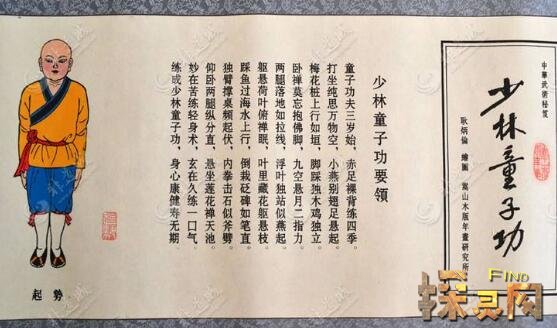 中華武術秘笈
少林童子功
耿炳倫 繪圖 嵩山木版年畫研究所
少林童子功要領
童子功夫三岁始，赤足裸背练四季。
打坐纯思万物空，小燕别翅足悬起。
梅花桩上行如垣，脚踩独木鸡独立。
卧禅莫忘抱佛脚，九空悬月二指力。
两腿落地如拉线，浮叶独站似燕起。
躯悬荷叶俯禅眠，叶里藏花躯悬枝。
踩鱼过海水上行，倒栽砭碑如笔直。
独臂撑桌频起伏，内拳击石似斧劈。
仰卧两腿纵分直，悬坐莲花禅天池。
妙在苦练轻身术，玄在久练一口气。
练成少林童子功，身心康健寿无期。
起勢
FIND
探灵网